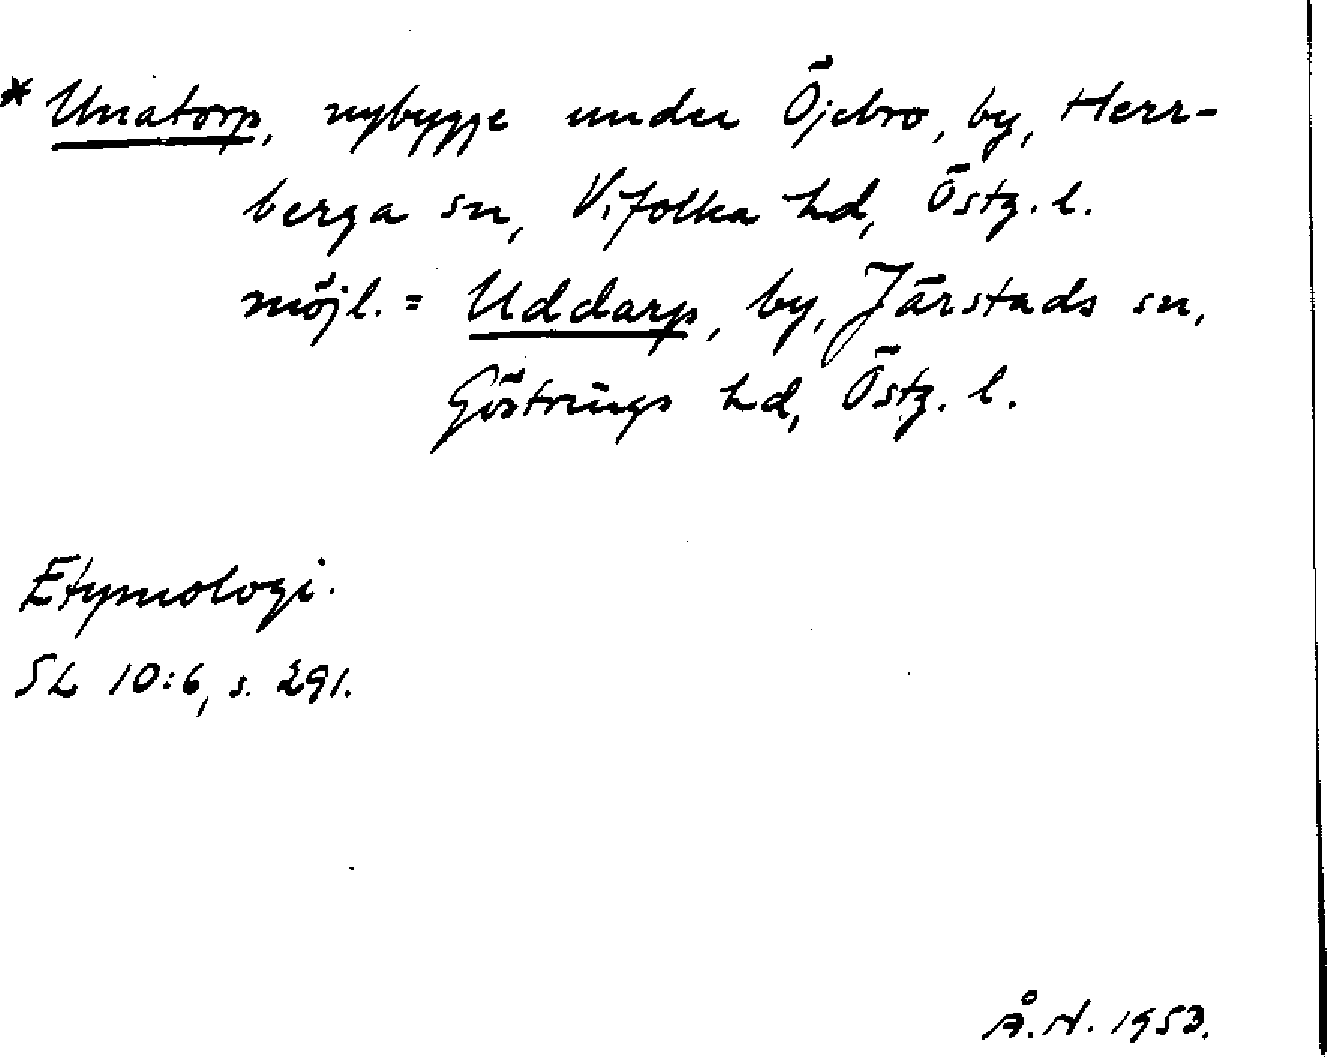 * Unatorp, nybygge under Öjebro, by, Herr-
berga sn, Vifolka hd, Östg. l.
möjl. = Uddarp, by, Järstads sn,
Göstrings hd, Östg. l.
Etymologi.
SL 10:6, s. 291.
Å.N. 1953.